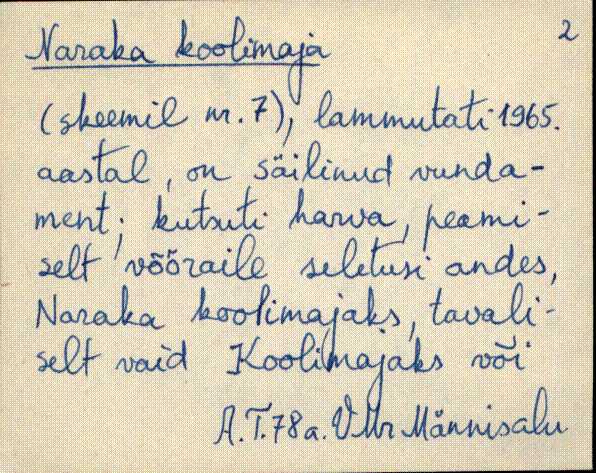 2
Naraka koolimaja
(skeemil nr. 7), lammutati 1965.
aastal, on säilinud vunda-
ment; kutsuti harva, peami-
selt võõraile seletusi andes,
Naraka koolimajaks, tavali-
selt vaid Koolimajaks või
A.T.78a. VMr Männisalu